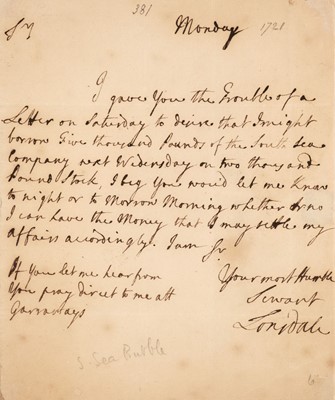 381
Sr Monday 1721
I gave You the Trouble of a
Letter on Saturday to desire that I might
borrow five thousand Pounds of the South Sea
Company next Wednesday on two thousand
Pound Stock, I beg You would let me know
to night or to Morrow Morning whether or no
I can have the Money that I may settle my
affairs accordingly. I am Sr
Your most Humble
Servant
Lonsdale
If You let me hear from
You pray direct to me att
Garraways
S. Sea Bubble